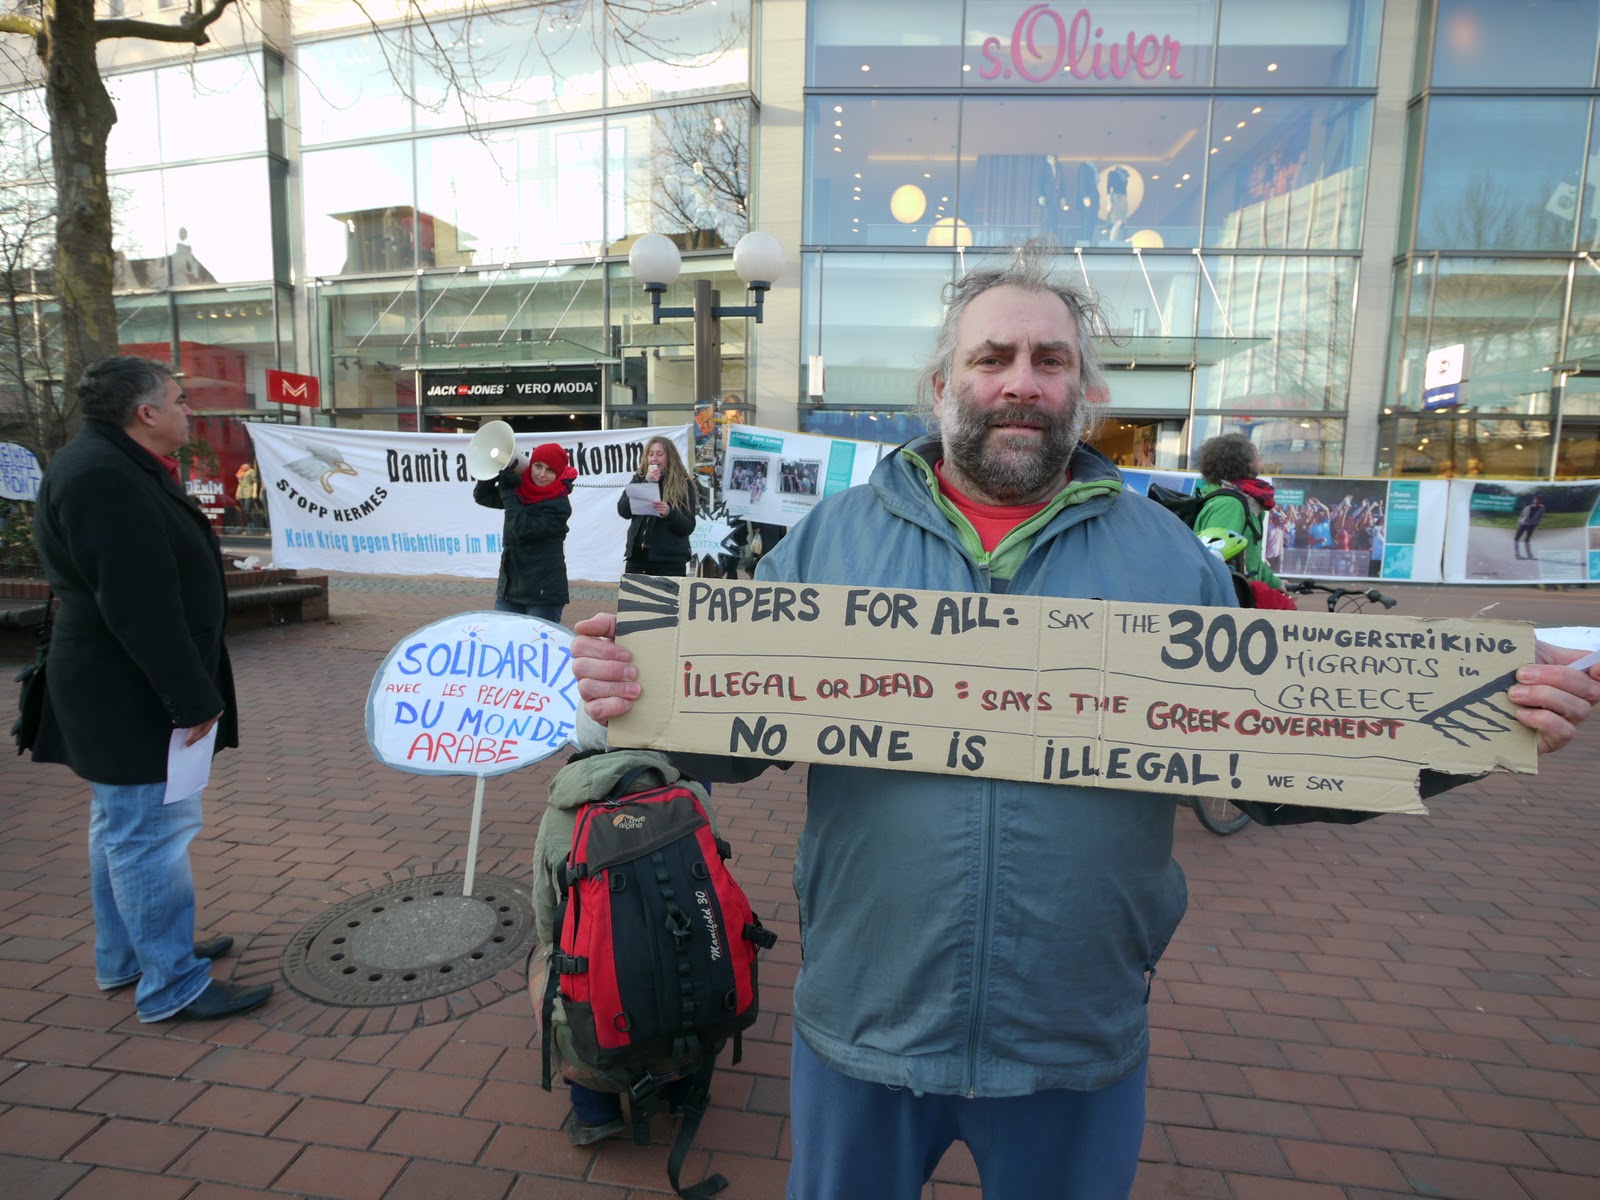 s.Oliver
JACK JONES VERO MODA
M
DENIM
Damit a
STOPP HERMES
Kein Krieg gegen Flüchtlinge im Mi
SOLIDARITÉ
AVEC LES PEUPLES
DU MONDE
ARABE
PAPERS FOR ALL: SAY THE 300 HUNGERSTRiKiNG
MiGRANTS in
GREECE
iLLEGAL OR DEAD : SAYS THE GREEK GOVERMENT
NO ONE IS iLLEGAL! WE SAY
Lowe
alpine
Manifold 30